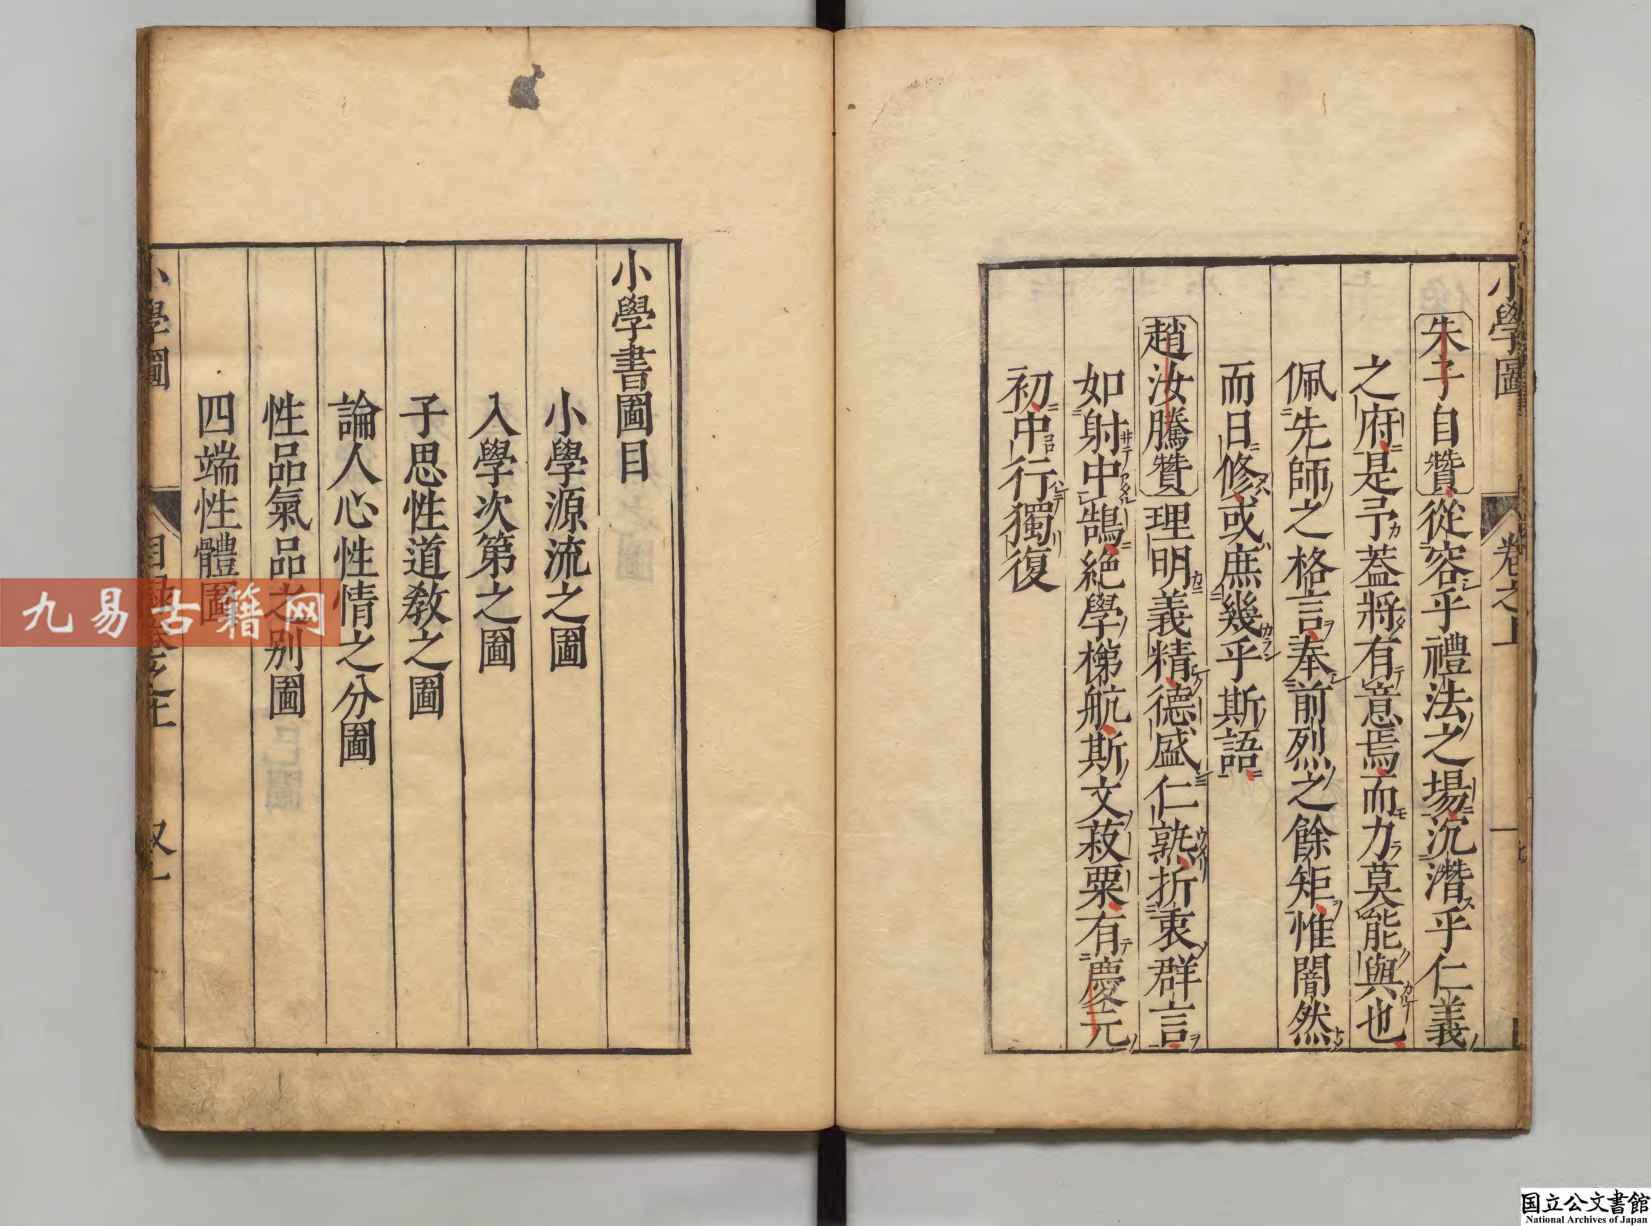 小學圖
卷之上
朱子自贊從容乎禮法之場沉潛乎仁義
之府是予蓋將有意焉而力莫能與也
佩先師之格言奉前烈之餘矩惟闇然
而日修或庶幾乎斯語
趙汝騰贊理明義精德盛仁熟折衷群言
如射中鵠絕學梯航斯文菽粟有慶元
初中行獨復
小學書圖目
小學源流之圖
入學次第之圖
子思性道教之圖
論人心性情之分圖
性品氣品之別圖
四端性體圖
小學圖
九易古籍网
国立公文書館
National Archives of Japan